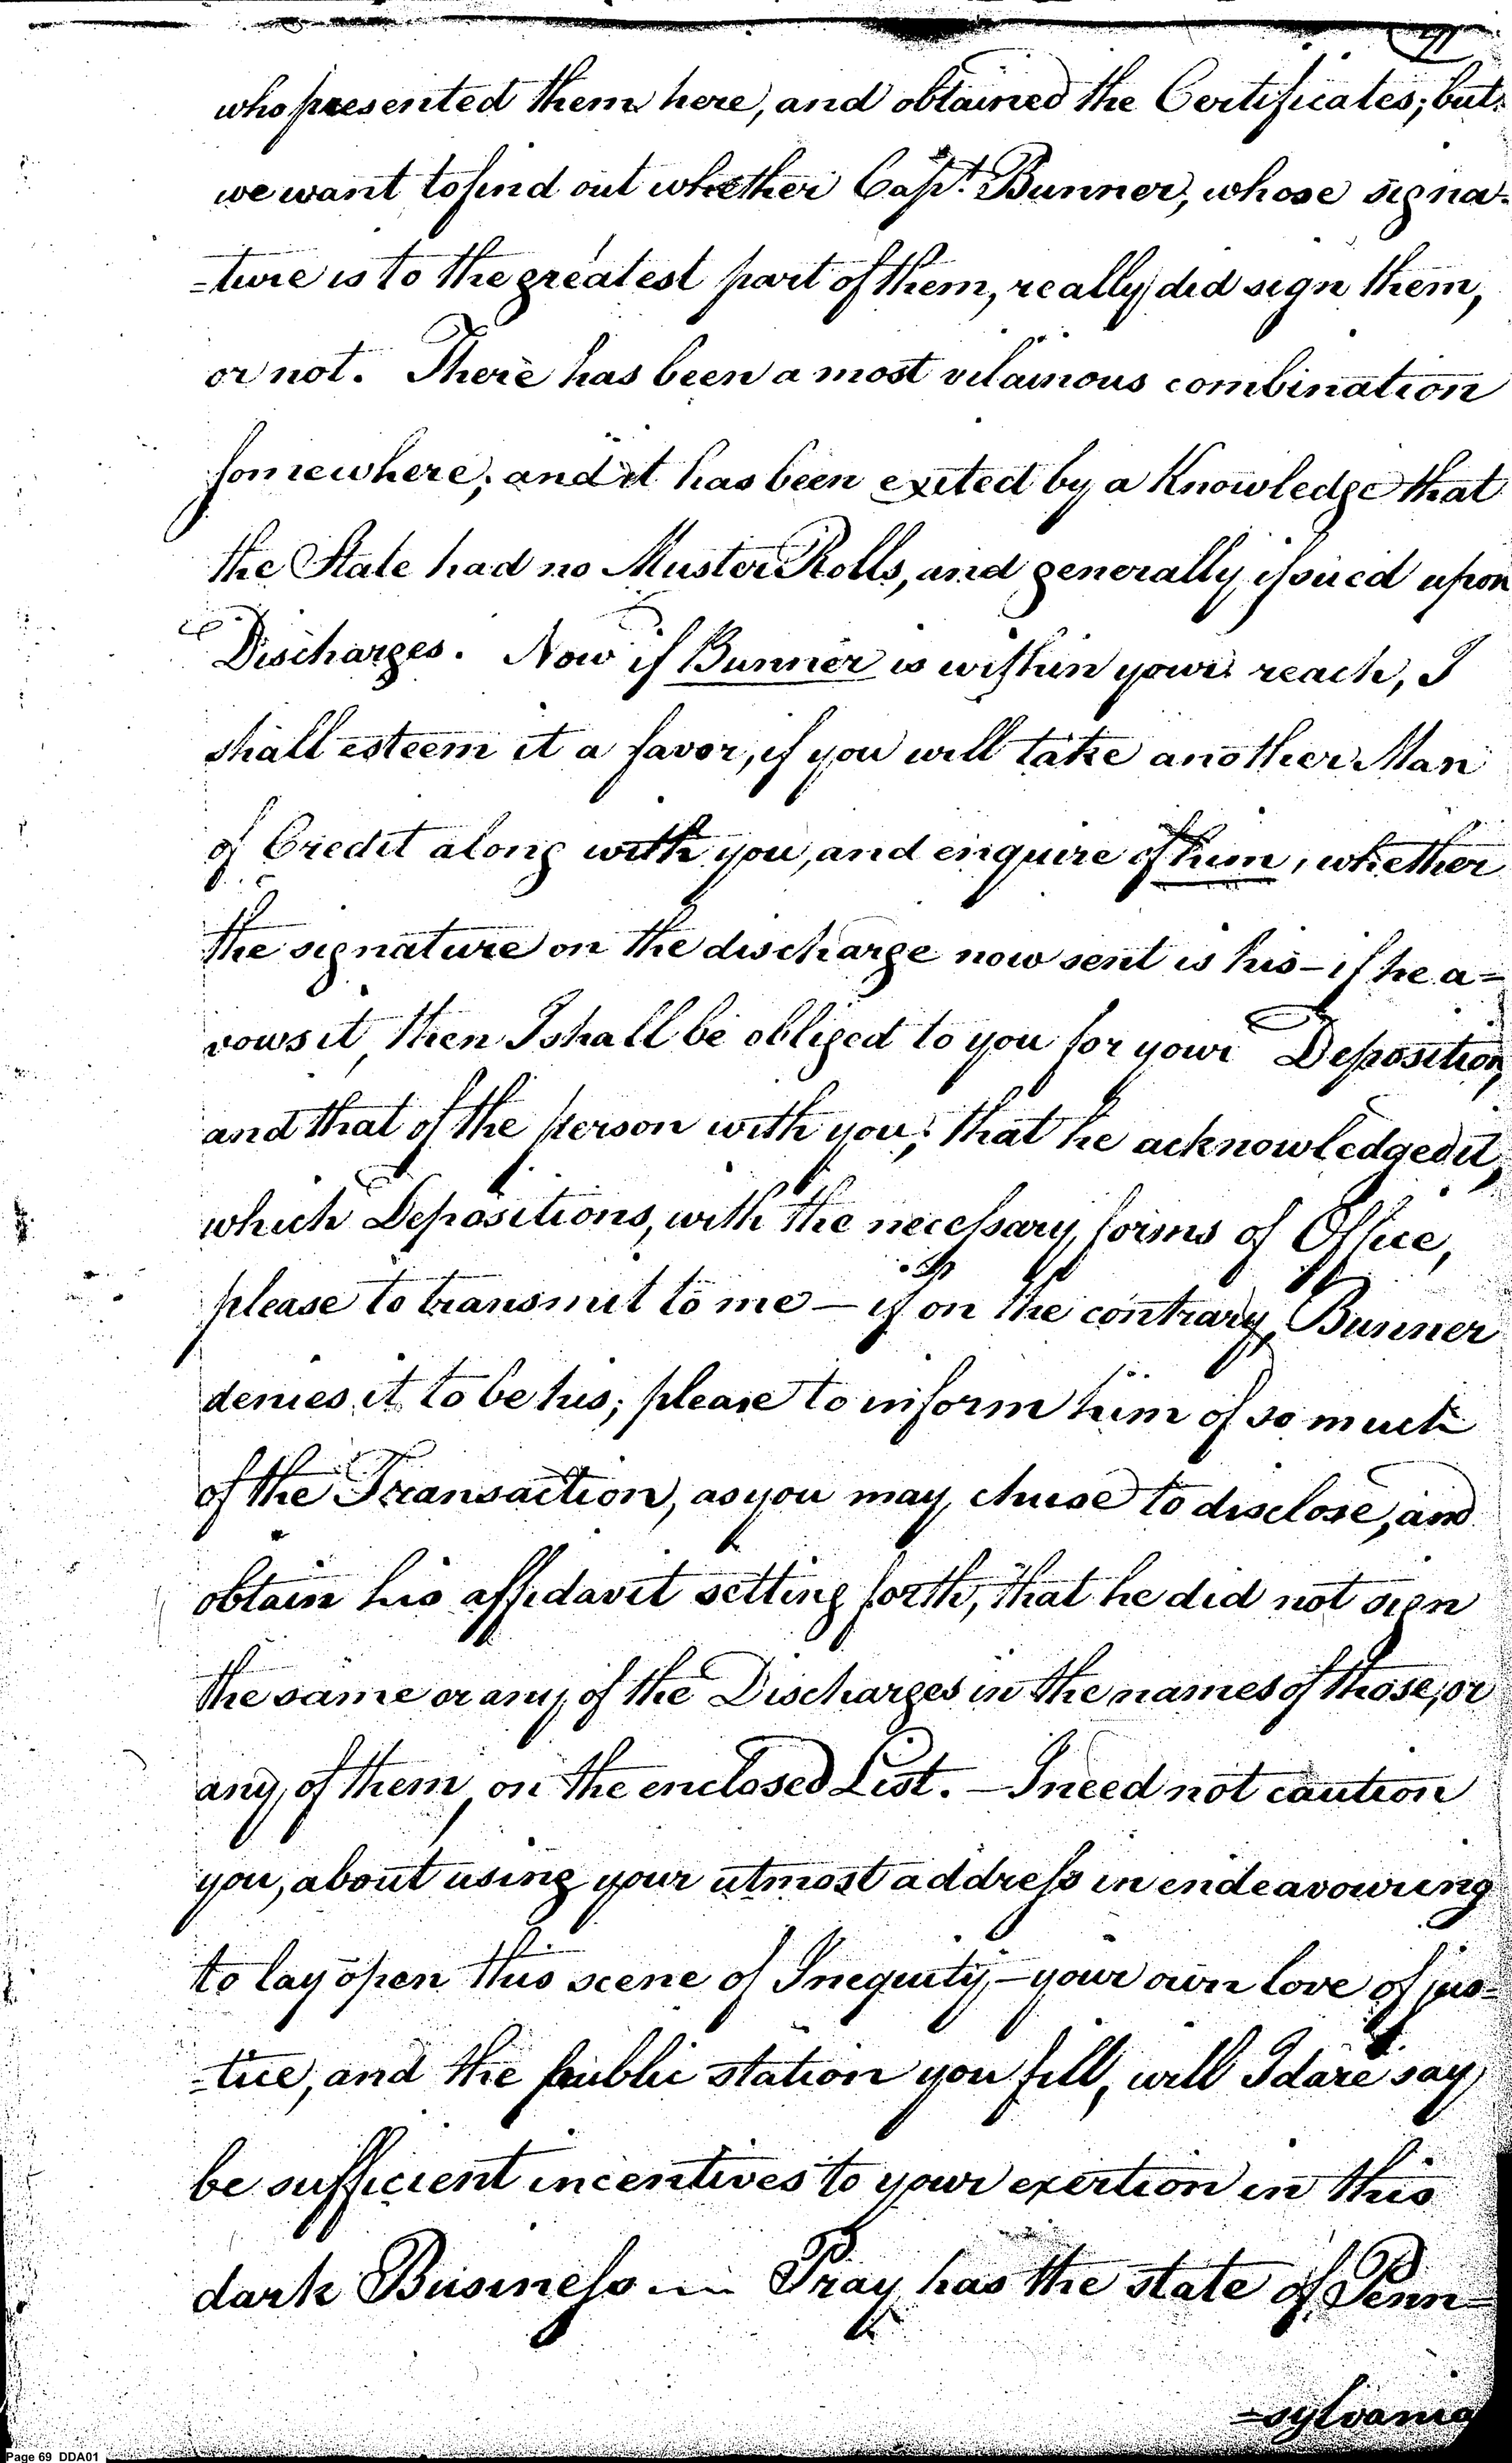 who presented them here, and obtained the Certificates; but
we want to find out whether Capt. Bunner, whose signa-
=ture is to the greatest part of them, really did sign them,
or not. There has been a most vilainous combination
somewhere; and it has been exited by a Knowledge that
the State had no Muster Rolls, and generally issued upon
Discharges. Now if Bunner is within your reach, I
shall esteem it a favor, if you will take another Man
of Credit along with you, and enquire of him, whether
the signature on the discharge now sent is his - if he a=
vows it, then I shall be obliged to you for your Deposition,
and that of the person with you; that he acknowledged it,
which Depositions, with the necessary forms of Office,
please to transmit to me — if on the contrary, Bunner
denies it to be his; please to inform him of so much
of the Transaction, as you may chuse to disclose, and
obtain his affidavit setting forth, that he did not sign
the same or any of the Discharges in the names of those, or
any of them, on the enclosed List. — I need not caution
you, about using your utmost address in endeavouring
to lay open this scene of Inequity, - your own love of jus=
=tice, and the public station you fill, will I dare say
be sufficient incentives to your exertion in this
dark Business — Pray has the state of Penn=
=sylvania
Page 69 DDA01